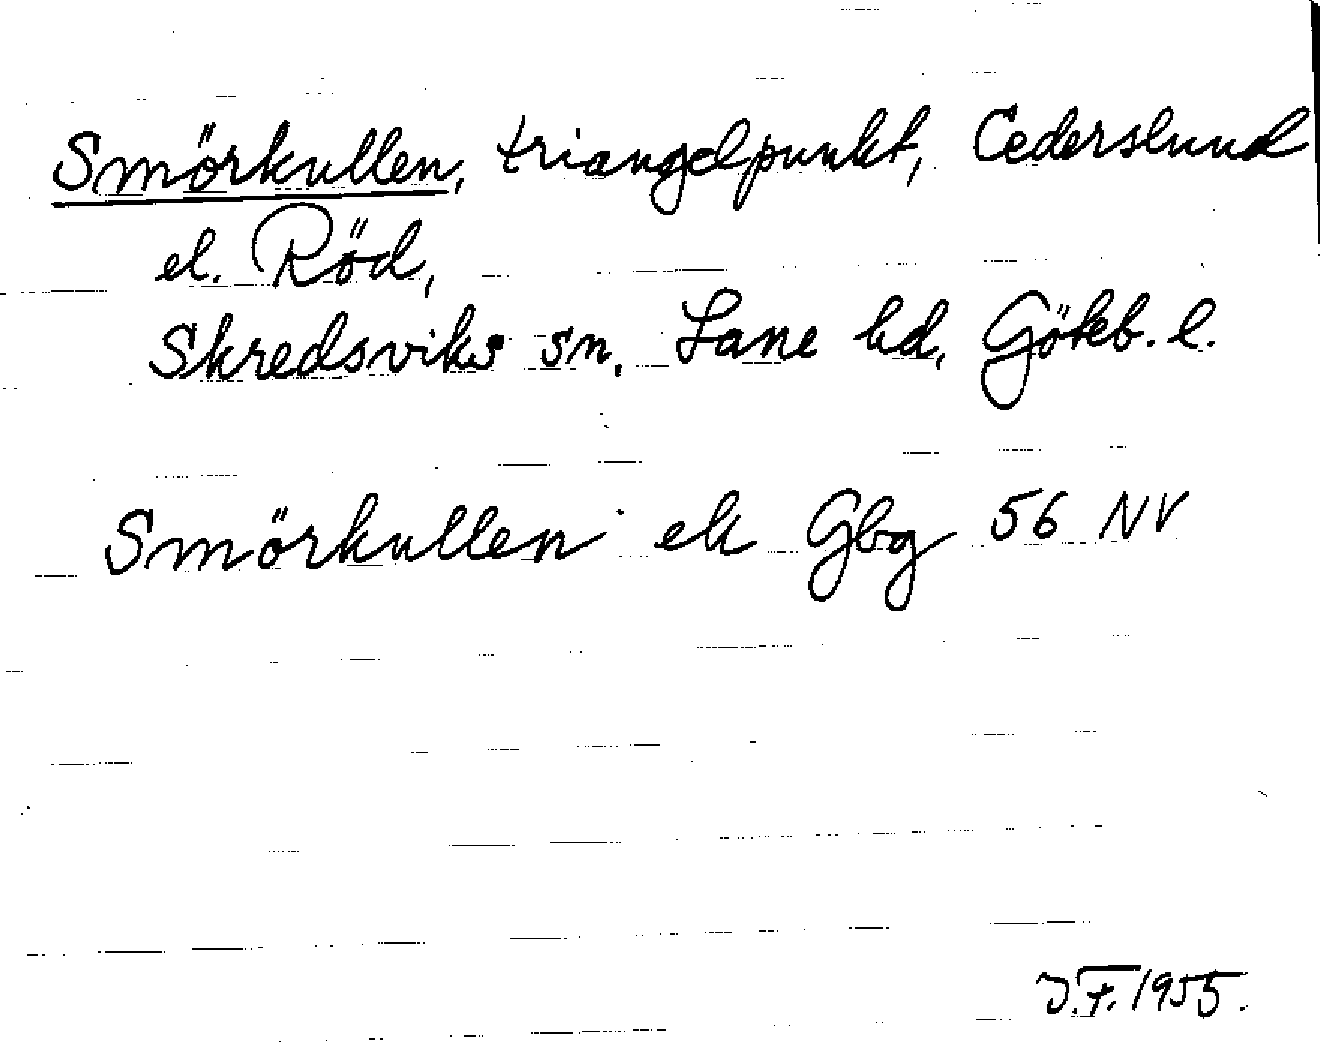 Smörkullen, triangelpunkt, Cederslund
el. Röd,
Skredsviks sn. Lane hd, Göteb. l.
Smörkullen ek Gbg 56 NV
J.F. 1955.